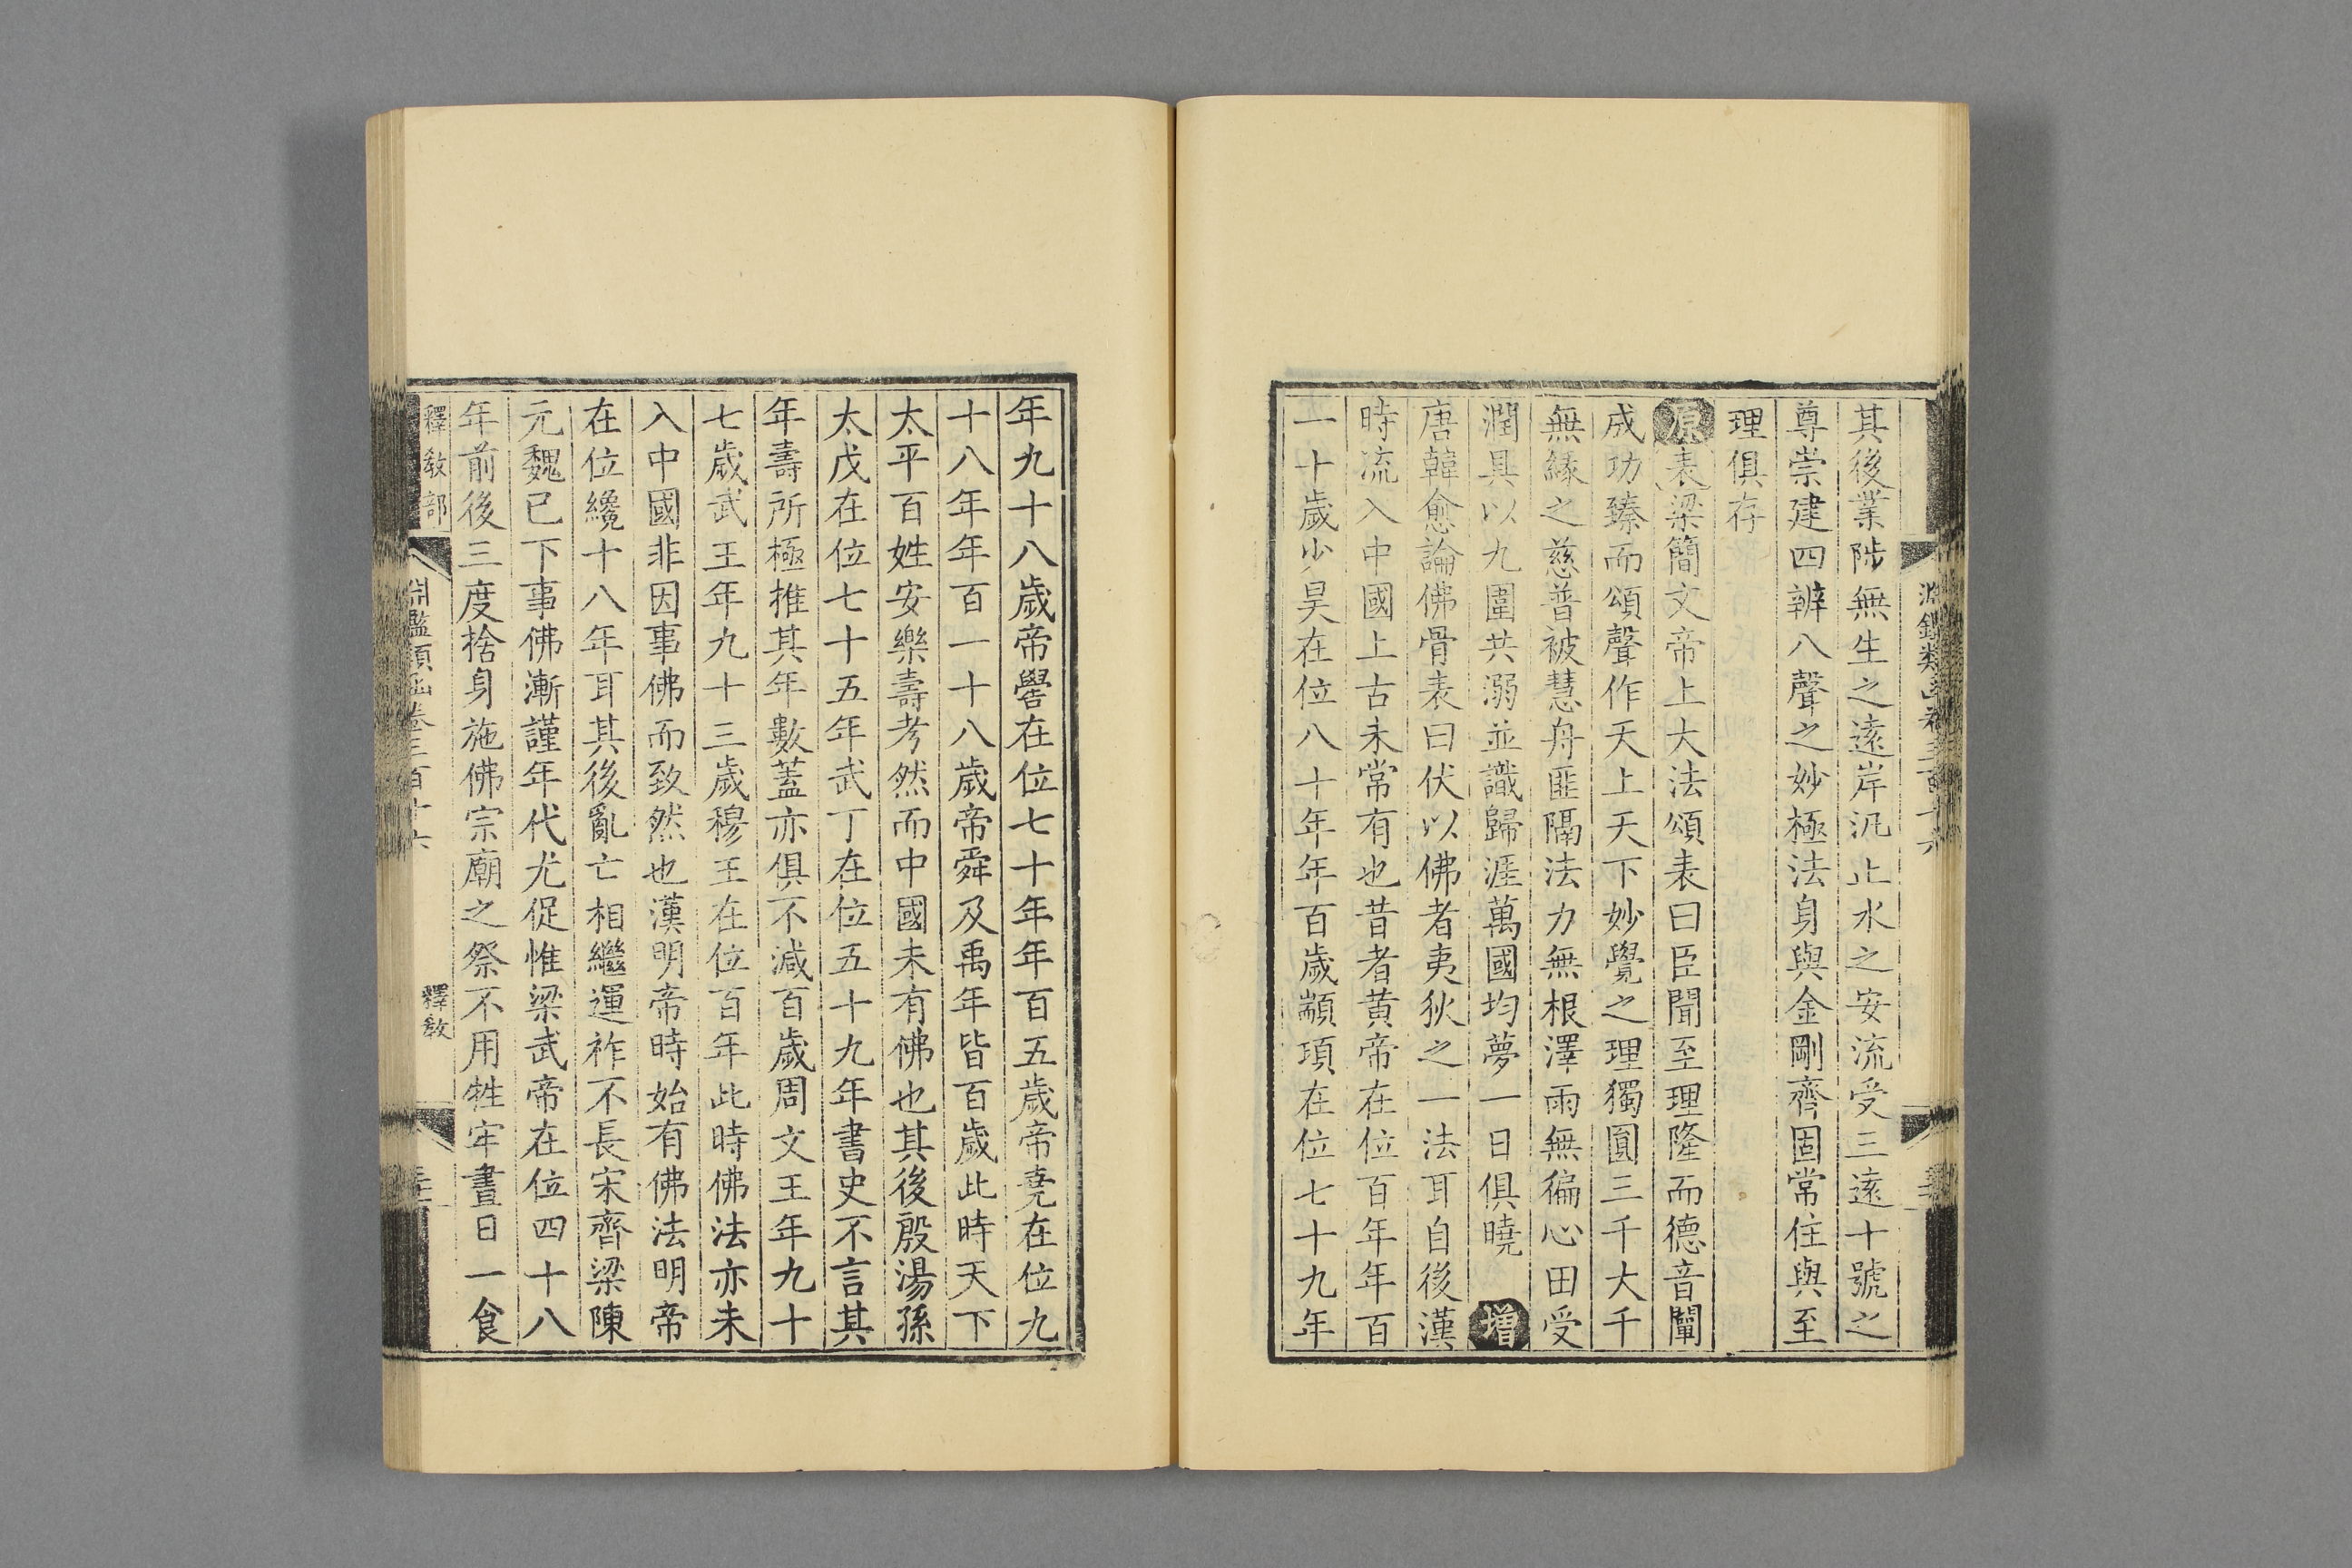 其後業陟無生之遠岸汎止水之安流受三遠十號之
尊崇建四辨八聲之妙極法身與金剛齊固常住與至
理俱存
原表梁簡文帝上大法頌表曰臣聞至理隆而德音闡
成功臻而頌聲作天上天下妙覺之理獨圓三千大千
無緣之慈普被慧舟匪隔法力無根澤雨無徧心田受
潤具以九圍共溺並識歸涯萬國均夢一日俱曉 增
唐韓愈論佛骨表曰伏以佛者夷狄之一法耳自後漢
時流入中國上古未常有也昔者黃帝在位百年年百
一十歲少昊在位八十年年百歲顓頊在位七十九年
年九十八歲帝嚳在位七十年年百五歲帝堯在位九
十八年年百一十八歲帝舜及禹年皆百歲此時天下
太平百姓安樂壽考然而中國未有佛也其後殷湯孫
太戊在位七十五年武丁在位五十九年書史不言其
年壽所極推其年數蓋亦俱不減百歲周文王年九十
七歲武王年九十三歲穆王在位百年此時佛法亦未
入中國非因事佛而致然也漢明帝時始有佛法明帝
在位纔十八年耳其後亂亡相繼運祚不長宋齊梁陳
元魏已下事佛漸謹年代尤促惟梁武帝在位四十八
年前後三度捨身施佛宗廟之祭不用牲牢晝日一食
釋教部 淵鑑類函卷三百十六 釋教